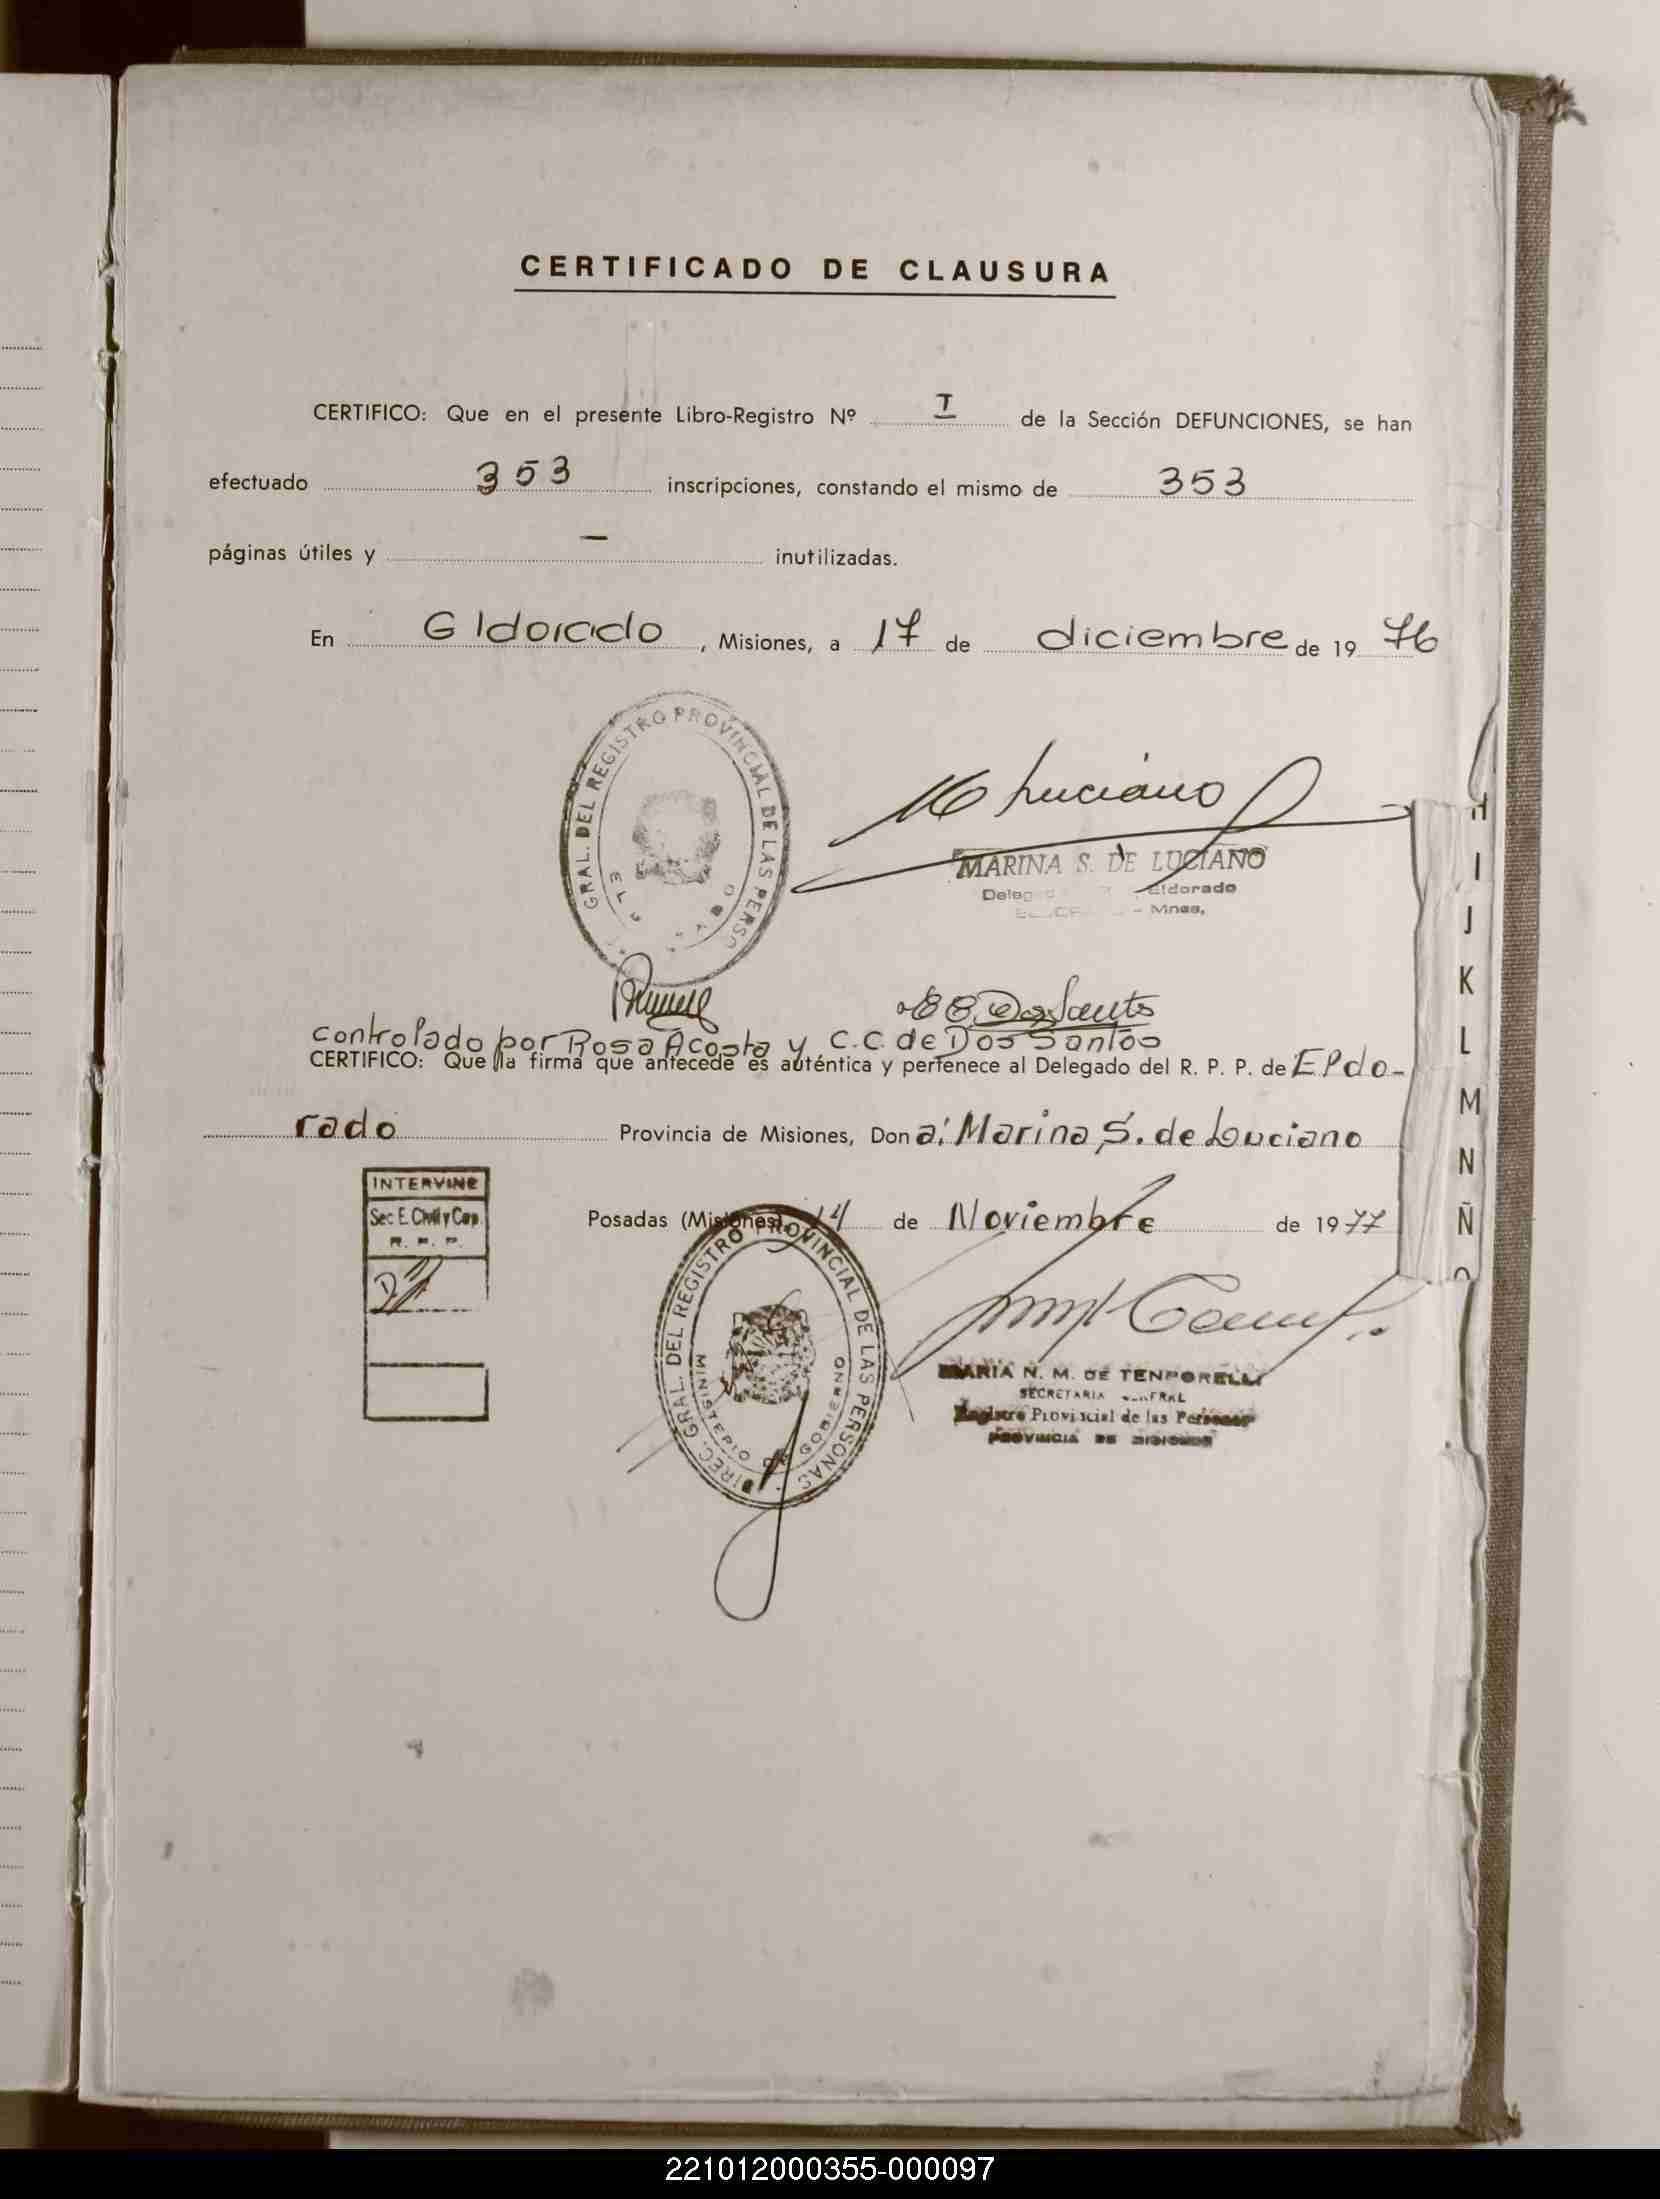 CERTIFICADO DE CLAUSURA
CERTIFICO: Que en el presente Libro-Registro Nº I de la Sección DEFUNCIONES, se han
efectuado 353 inscripciones, constando el mismo de 353
páginas útiles y — inutilizadas.
En Eldorado, Misiones, a 17 de diciembre de 1976
GRAL. DEL REGISTRO PROVINCIAL DE LAS PERSO
M Luciano
MARINA S. DE LUCIANO
Eldorado
- Mnes.
Dos Santos
controlado por Rosa Acosta y C.C. de Dos Santos
CERTIFICO: Que la firma que antecede es auténtica y pertenece al Delegado del R. P. P. de Eldo-
rado Provincia de Misiones, Don a: Marina S. de Luciano
INTERVINE
Sec E. Civil y Cap.
R. P. P.
Posadas (Misiones), 14 de Noviembre de 1977
DIREC. GRAL. DEL REGISTRO PROVINCIAL DE LAS PERSONAS
MINISTERIO DE GOBIERNO
MARIA N. M. DE TENPORELLI
SECRETARIA GENERAL
Registro Provincial de las Personas
PROVINCIA DE MISIONES
H
I
J
K
L
M
N
Ñ
O
221012000355-000097